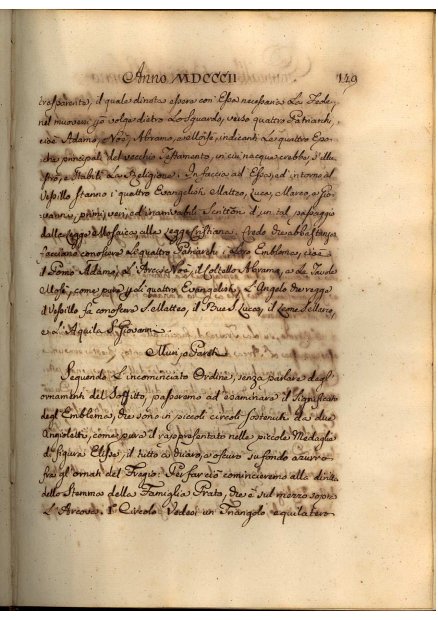 Anno MDCCCII 149
trasparente, il quale dinota essere con Essa necessaria La Fede,
nel muoversi volge dietro Lo Sguardo, verso quattro Patriarchi,
cioè Adamo, Noè, Abramo, e Moisè, indicanti Le quattro Epo-
che principali del vecchio Testamento, in cui nacque, crebbe, s'illu-
strò, e stabilì La Religione. In faccia ad Essa, ed intorno al
Vessillo stanno i quattro Evangelisti Matteo, Luca, Marco, e Gio-
vanni, primi veri, ed inarrivabili Scrittori d'un tal passaggio
dalla Legge Mosaica alla Legge Cristiana. Credo che abbastanza
facciano conoscere Le quattro Patriarchi i Loro Emblemi, cioè
il Pomo Adamo, L'Arca Noè, il Coltello Abramo, e Le Tavole
Mosè, come pure gli quattro Evangelisti. L'Angelo che regge
il Vessillo fa conoscere S. Matteo, il Bue S. Luca, il Leone S. Marco,
e L'Aquila S. Giovanni.
Muri, o Pareti
Seguendo L'incominciato Ordine, senza parlare degl'
ornamenti del Soffitto, passeremo ad esaminare il significato
degl'Emblemi, che sono in piccoli circoli sostenuti da due
Angioletti, come pure il rappresentato nelle piccole Medaglie
di figura Elisse, il tutto a chiaro, e oscuro su fondo azzurro
fra gl'ornati del Fregio. Per far ciò cominceremo alla diritta
dello Stemma della Famiglia Prato, che è sul mezzo sopra
L'Arcova. 1° Circolo Vedesi un Triangolo equilatero